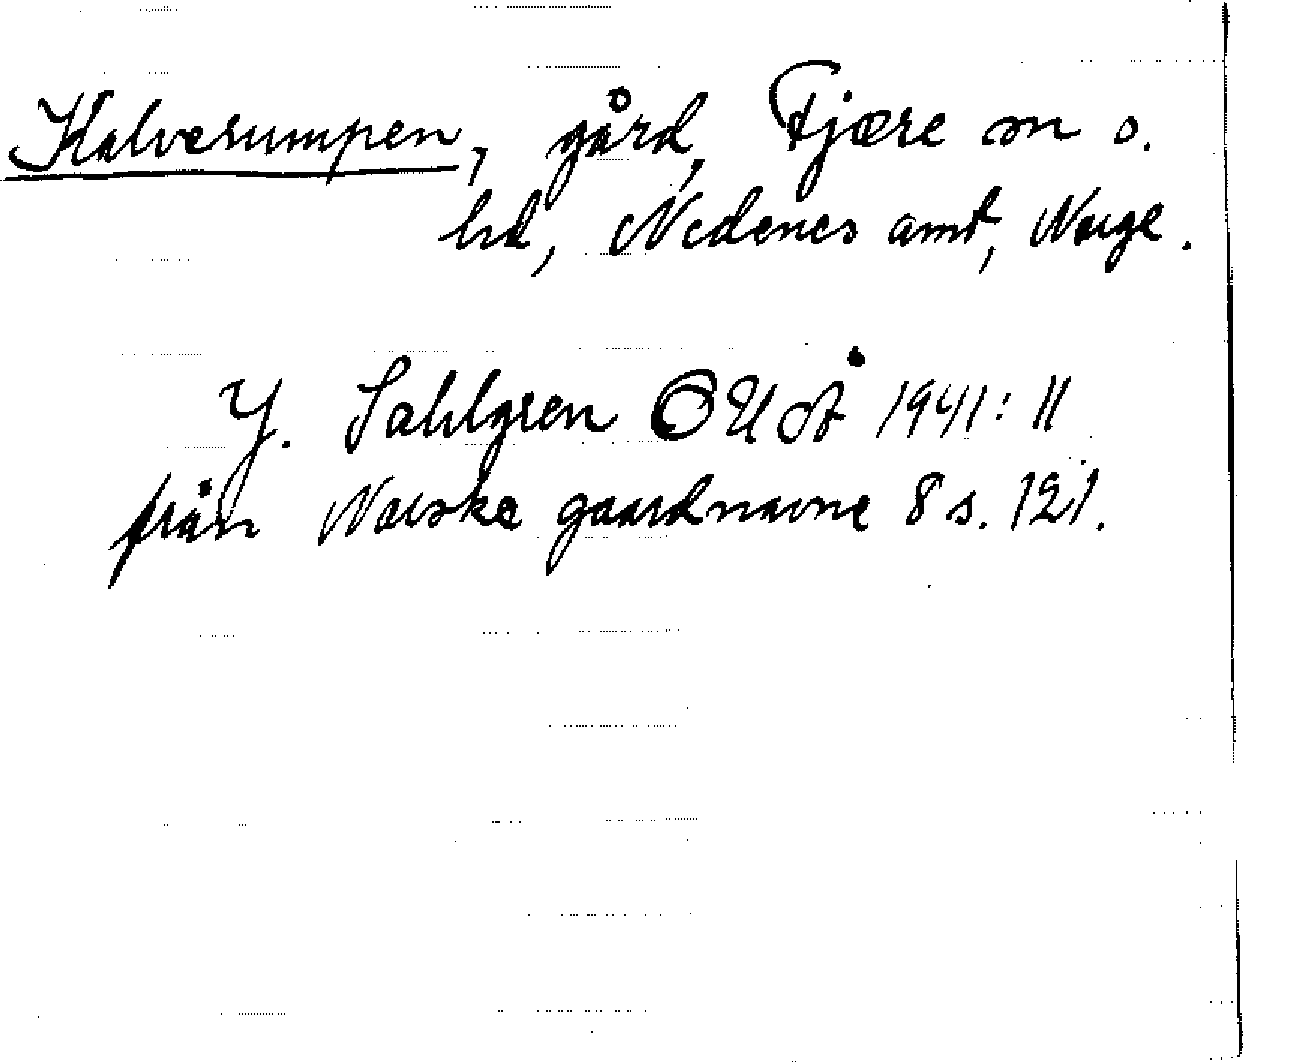 Kalverumpen, gård, Fjære sn o.
hd, Nedenes amt, Norge.
J. Sahlgren OUÅ 1941: 11
från Norske gaardnavne 8 s. 121.